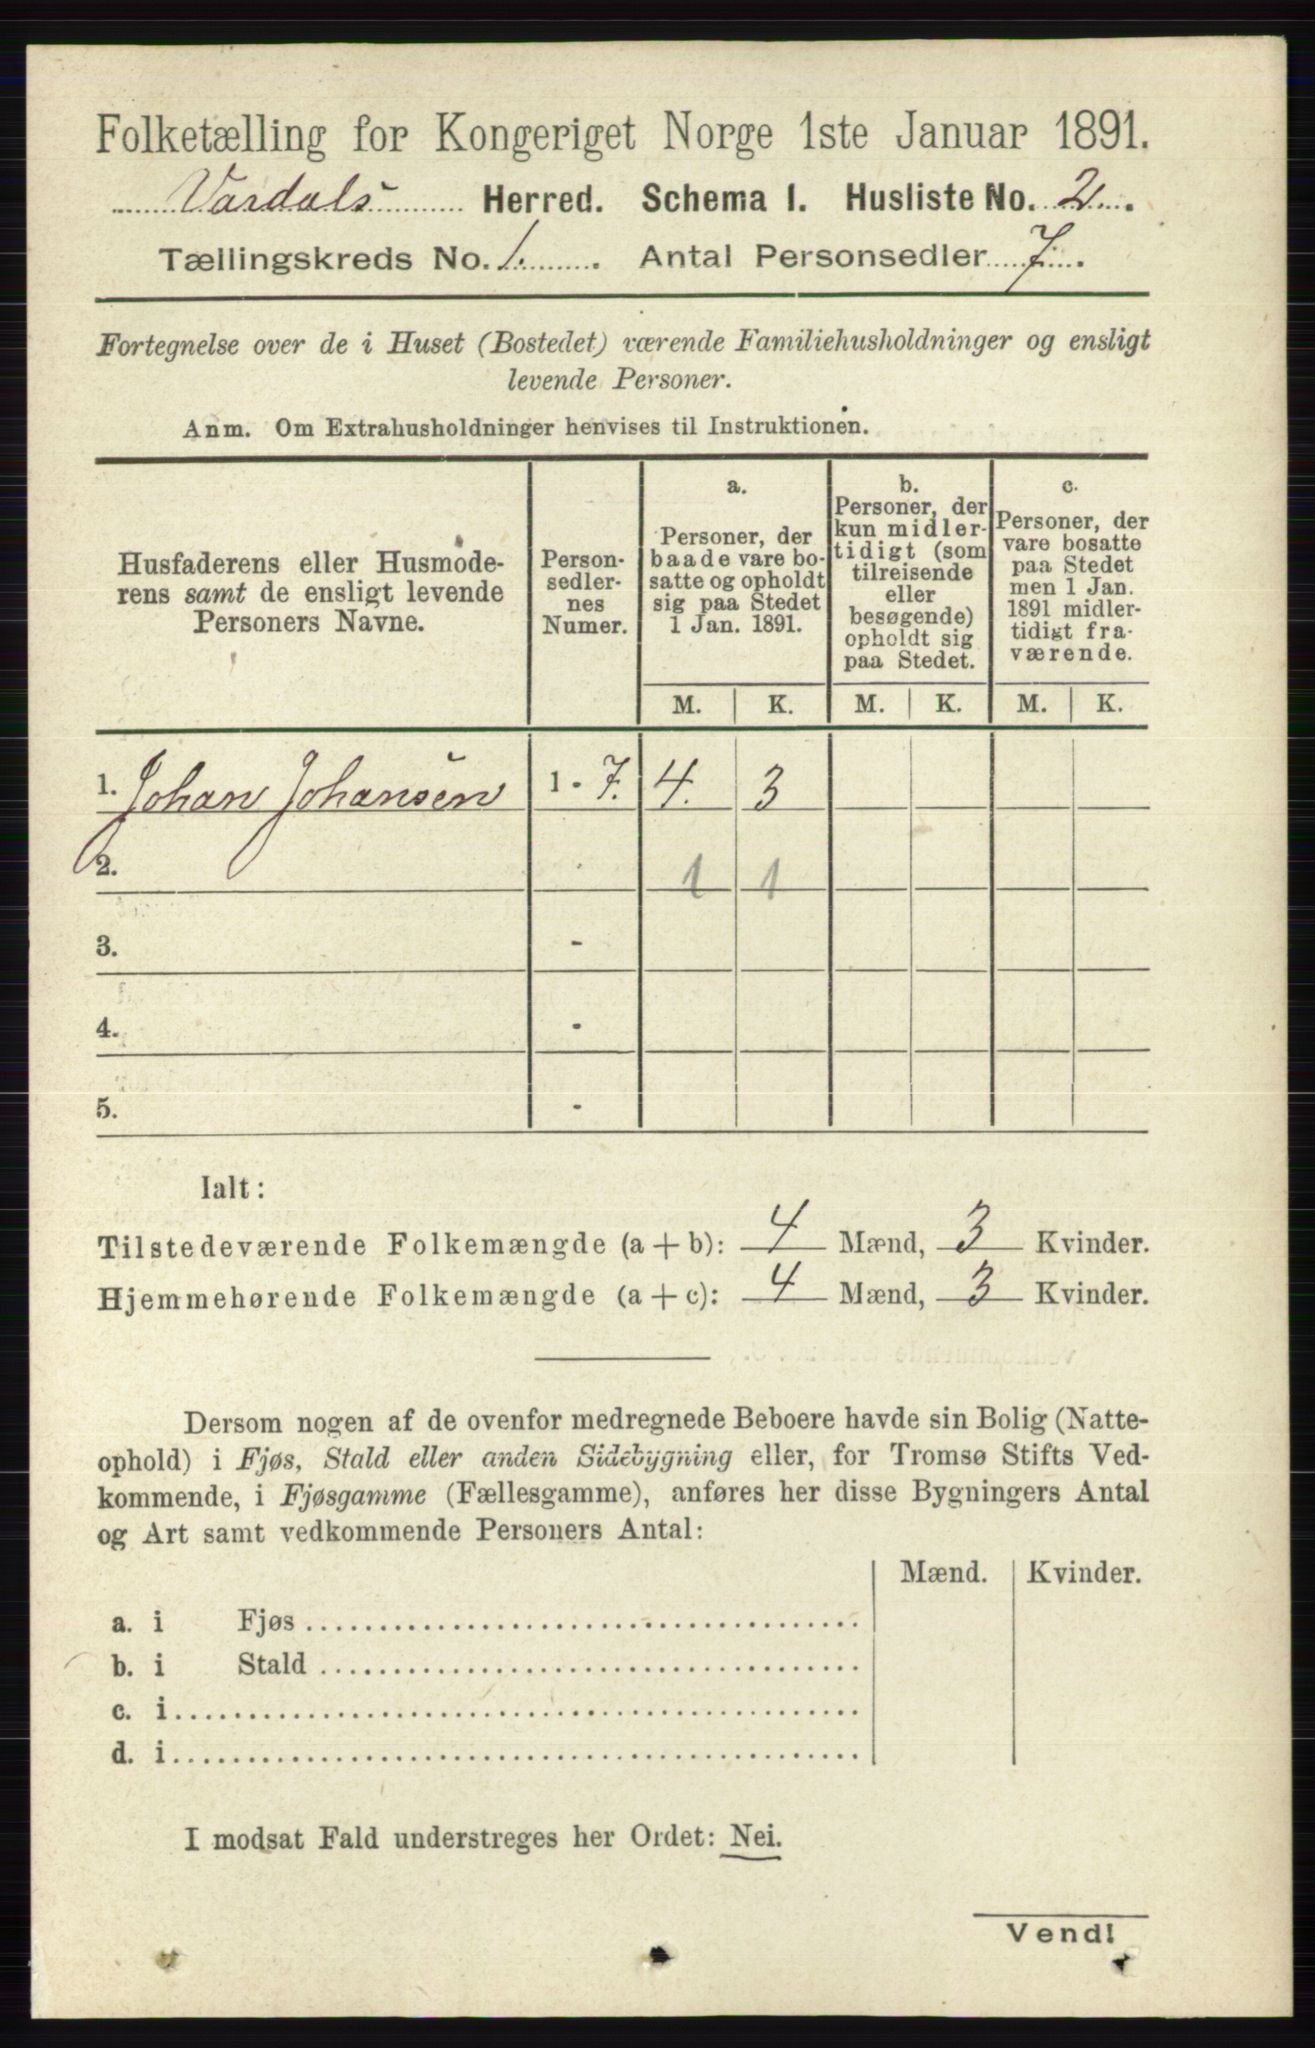 Folketælling for Kongeriget Norge 1ste Januar 1891.
Vardals Herred. Schema I. Husliste No. 2.
Tællingskreds No. 1. Antal Personsedler 7.
Fortegnelse over de i Huset (Bostedet) værende Familiehusholdninger og ensligt
levende Personer.
Anm. Om Extrahusholdninger henvises til Instruktionen.
Husfaderens eller Husmode-
rens samt de ensligt levende
Personers Navne.
Person-
sedler-
nes
Numer.
a.
Personer, der
baade vare bo-
satte og opholdt
sig paa Stedet
1 Jan. 1891.
b.
Personer, der
kun midler-
tidigt (som
tilreisende
eller
besøgende)
opholdt sig
paa Stedet.
c.
Personer, der
vare bosatte
paa Stedet
men 1 Jan.
1891 midler-
tidigt fra-
værende.
M. K. M. K. M. K.
1. Johan Johansen 1 - 7. 4. 3
2. - 1 1
3. -
4. -
5. -
Ialt:
Tilstedeværende Folkemængde (a + b): 4 Mænd, 3 Kvinder.
Hjemmehørende Folkemængde (a + c): 4 Mænd, 3 Kvinder.
Dersom nogen af de ovenfor medregnede Beboere havde sin Bolig (Natte-
ophold) i Fjøs, Stald eller anden Sidebygning eller, for Tromsø Stifts Ved-
kommende, i Fjøsgamme (Fællesgamme), anføres her disse Bygningers Antal
og Art samt vedkommende Personers Antal:
Mænd. Kvinder.
a. i Fjøs
b. i Stald
c. i
d. i
I modsat Fald understreges her Ordet: Nei.
Vend!